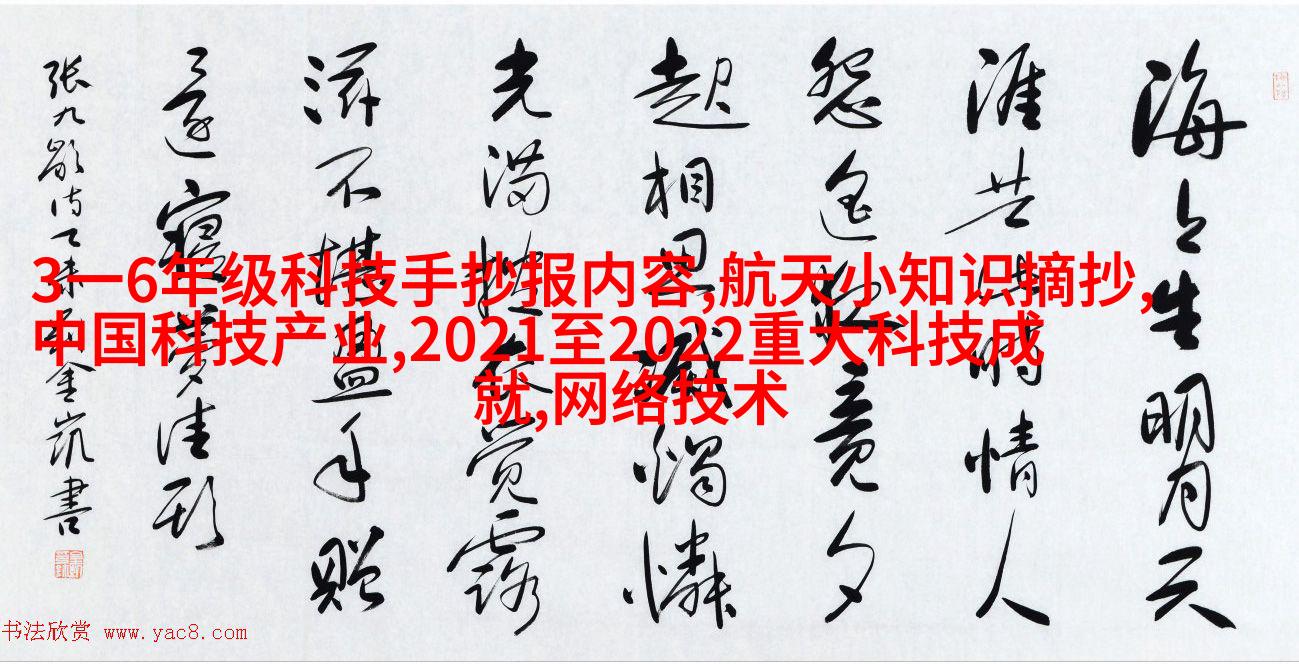 3一6年级科技手抄报内容,航天小知识摘抄,
中国科技产业,2021至2022重大科技成
就,网络技术
海上生明月天
涯共此时情人
怨遥夜竟夕
起相思滅燭憐
光满披衣觉露
滋不堪盈手赠
还寝梦佳期
张九龄诗乙未年金凯書
书法欣赏 www.yac8.com